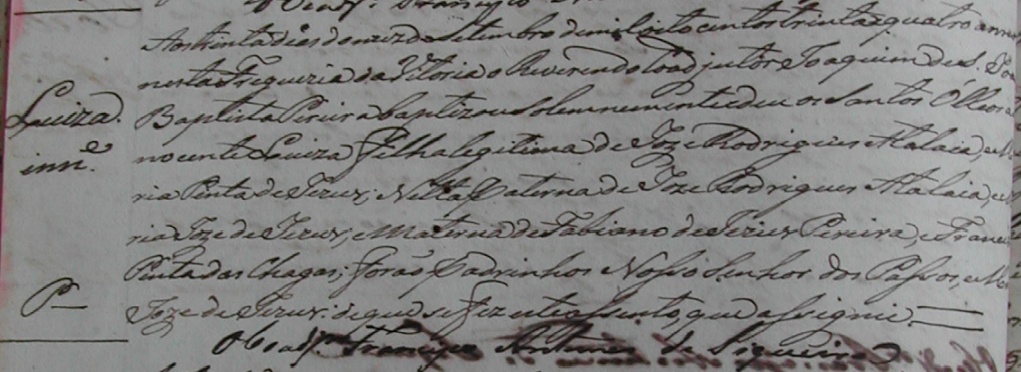 Aos trinta dias do mez de Setembro de mil oito centos trinta e quatro annos
nesta Freguezia da Vitoria o Reverendo Coadjutor Joaquim de S. Joa
Luiza.
Baptista Pereira baptizou Solemnemente e deu os Santos Olleos a
inn.e
nocente Luiza filha legitima de Joze Rodrigues Atalaia, e Ma
ria Pinta de Jezus; Netta Paterna de Joze Rodrigues Atalaia, e
ria Joze de Jezus, e Materna de Fabiano de Jezus Pereira, e Fran
Pinta das Chagas; forão Padrinhos Nosso Senhor dos Passos, e Ma
P
Joze de Jezus: de que se fez este assento, que assignei.
O Coadj.or Francisco Antunes de Siqueira